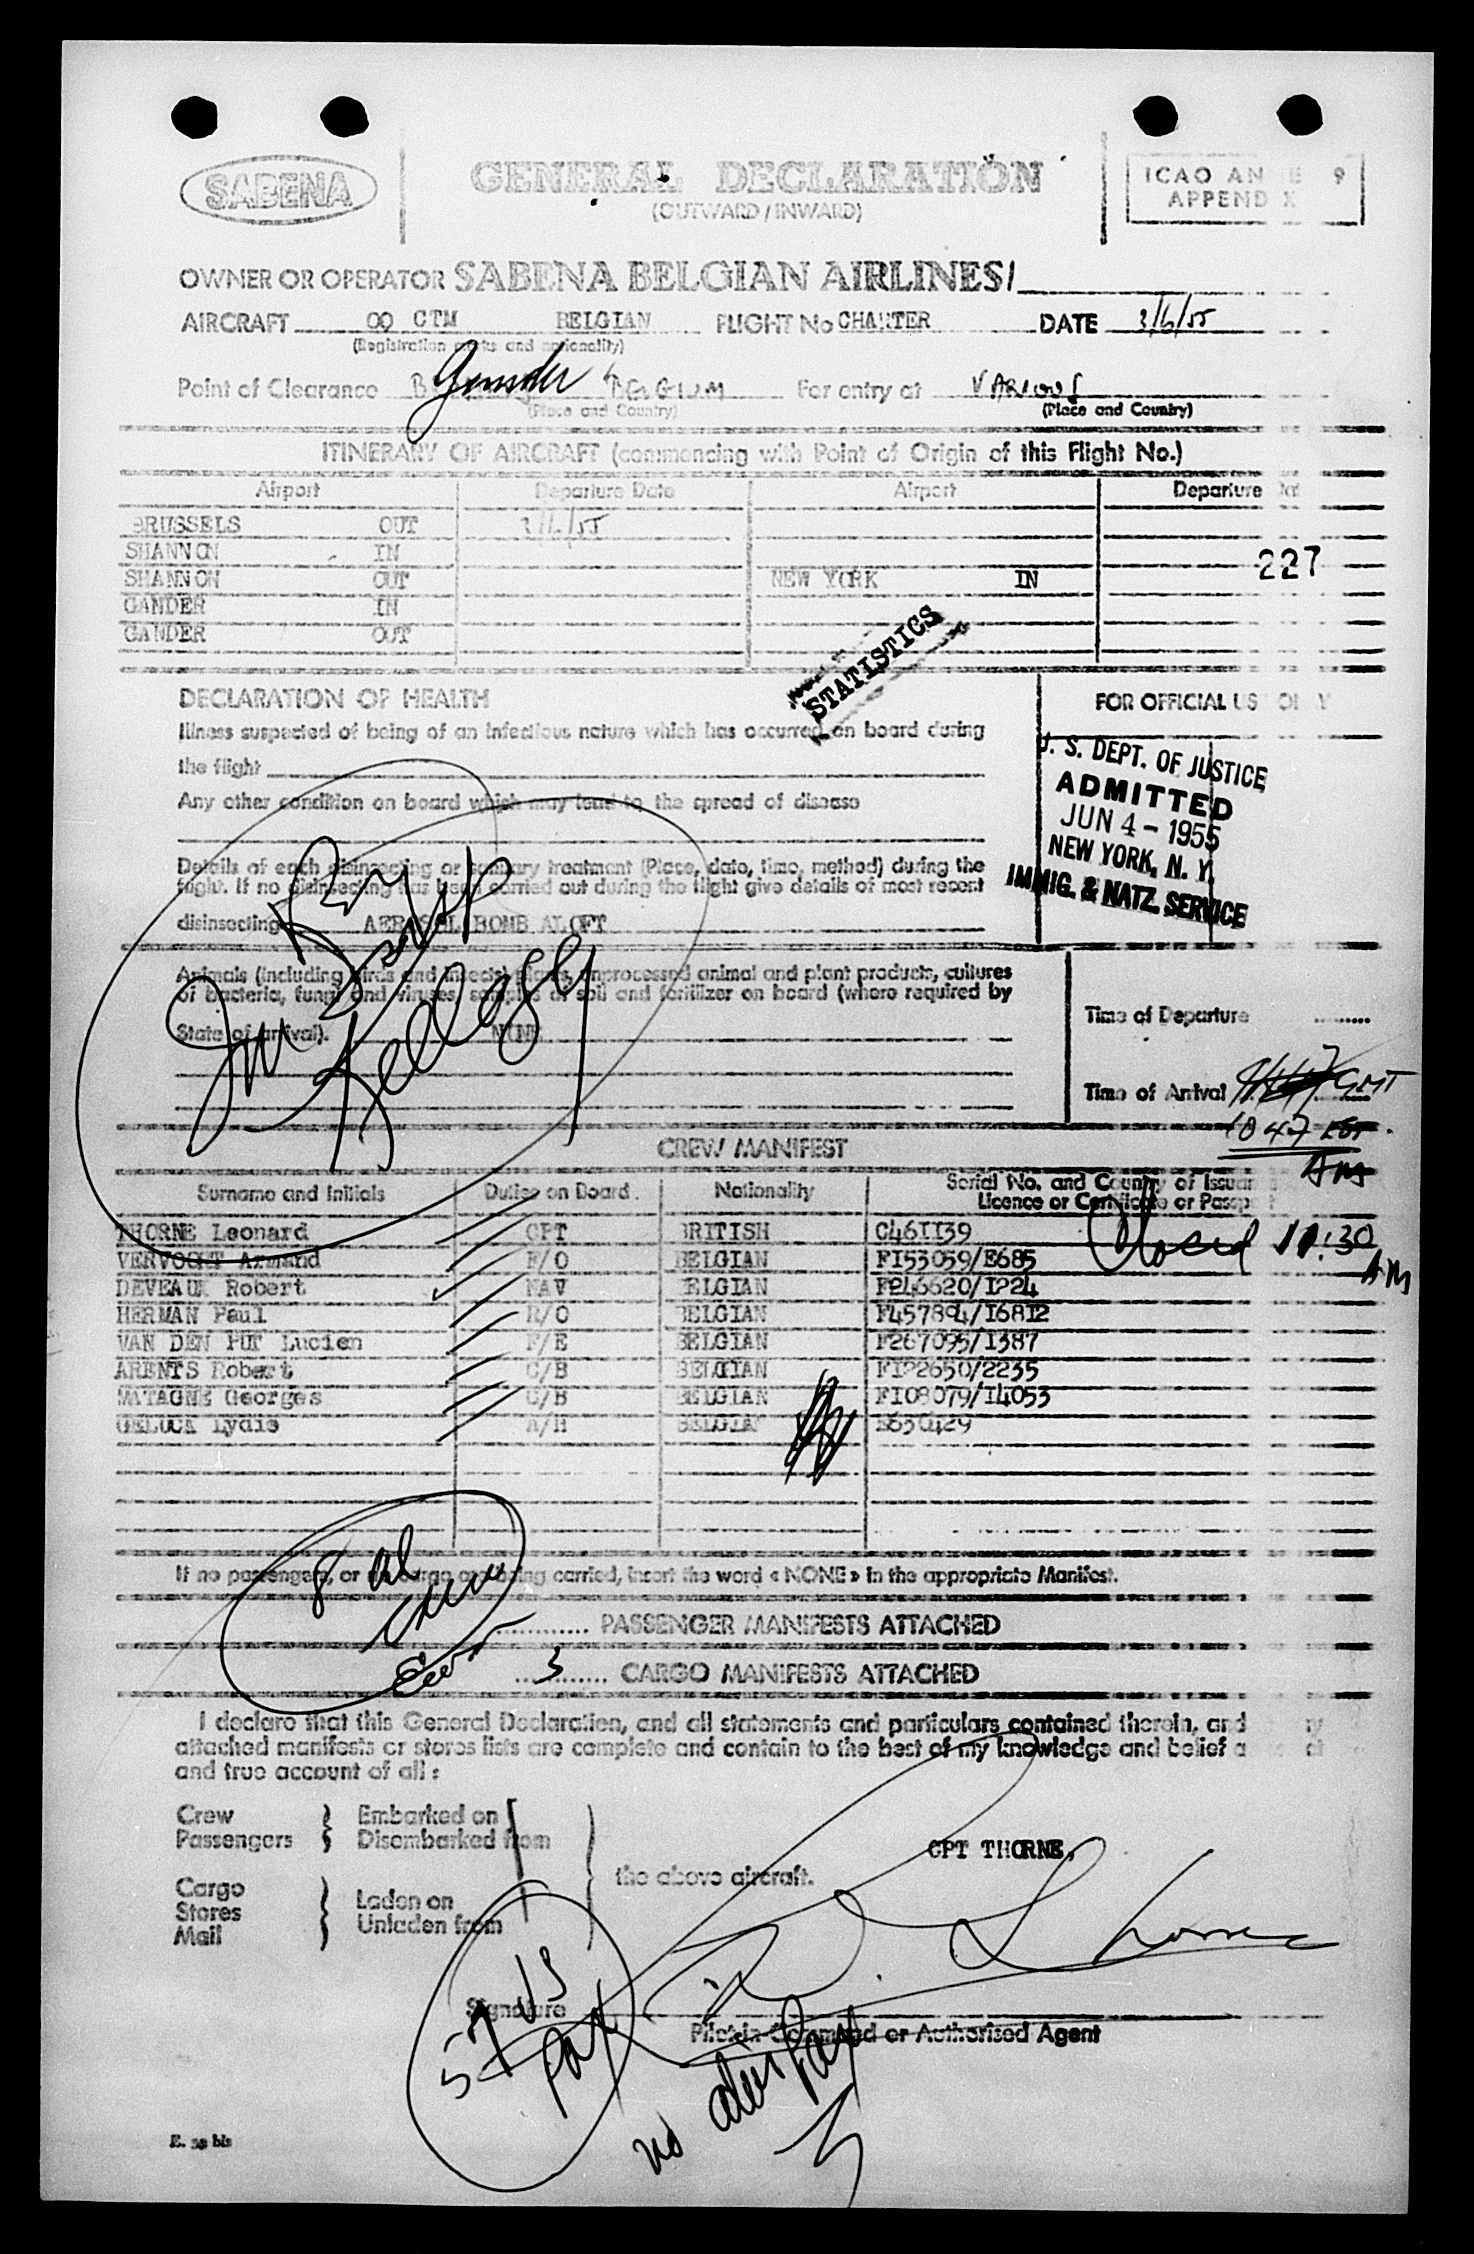 SABENA
GENERAL DECLARATION
(OUTWARD / INWARD)
ICAO AN E 9
APPEND X
OWNER OR OPERATOR SABENA BELGIAN AIRLINES/
AIRCRAFT OO CTM BELGIAN FLIGHT No CHARTER DATE 3/6/55
(Registration marks and nationality)
Point of Clearance Gander BELGIUM For entry at VARIOUS
(Place and Country) (Place and Country)
ITINERARY OF AIRCRAFT (commencing with Point of Origin of this Flight No.)
Airport Departure Date Airport Departure
BRUSSELS OUT 3/6/55
SHANNON IN
SHANNON OUT NEW YORK IN 227
GANDER IN
GANDER OUT
STATISTICS
DECLARATION OF HEALTH FOR OFFICIAL US O Y
Illness suspected of being of an infectious nature which has occurred on board during
the flight
Any other condition on board which may lead to the spread of disease
U. S. DEPT. OF JUSTICE
ADMITTED
JUN 4 - 1955
NEW YORK, N. Y.
IMMIG. & NATZ. SERVICE
Details of each disinsecting or sanitary treatment (Place, date, time, method) during the
flight. If no disinsecting has been carried out during the flight give details of most recent
disinsecting AEROSOL BOMB ALOFT
Animals (including birds and insects) plants, unprocessed animal and plant products, cultures
of bacteria, fungi and viruses, samples of soil and fertilizer on board (where required by
State of arrival). NONE
Time of Departure
Time of Arrival GMT
1047 EST.
AM
CREW MANIFEST
Surname and Initials Duties on Board Nationality Serial No. and Country of Issuan
Licence or Certificate or Passp t
THORNE Leonard CPT BRITISH C461139
Closed 11:30
AM
VERVOORT Armand F/O BELGIAN F153059/E685
DEVEAUX Robert NAV BELGIAN F246620/1224
HERMAN Paul R/O BELGIAN F457894/16812
VAN DEN PUT Lucien F/E BELGIAN F267095/1387
ARENTS Robert C/B BELGIAN F122650/2235
MATAGNE Georges C/B BELGIAN F108079/14053
GELUCK Lydie A/H BELGIAN E650429
If no passengers, or no cargo are being carried, insert the word « NONE » in the appropriate Manifest.
8 al
crew
PASSENGER MANIFESTS ATTACHED
3 CARGO MANIFESTS ATTACHED
I declare that this General Declaration, and all statements and particulars contained therein, and ny
attached manifests or stores lists are complete and contain to the best of my knowledge and belief a ct
and true account of all :
Crew Embarked on
Passengers Disembarked from
CPT THORNE,
the above aircraft.
Cargo Laden on
Stores
Mail Unladen from
L Thorne
57 US
Pax
Signature
Pilot in Command or Authorised Agent
no alien Pax
E. 38 bis